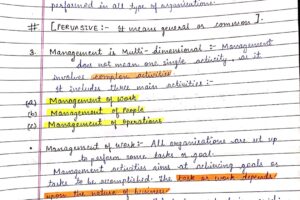 performed in all type of organisations.
# [PERVASIVE :- It means general or common].
3. Management is Multi-dimensional :- Management
does not mean one single activity, as it
involves complex activities
It includes three main activities :-
(a) Management of work
(b) Management of People
(c) Management of Operations
• Management of Work :- All organisations are set up
to perform some tasks or goal.
Management activities aim at achieving goals or
tasks to be accomplished. The task or work depends
upon the nature of business.